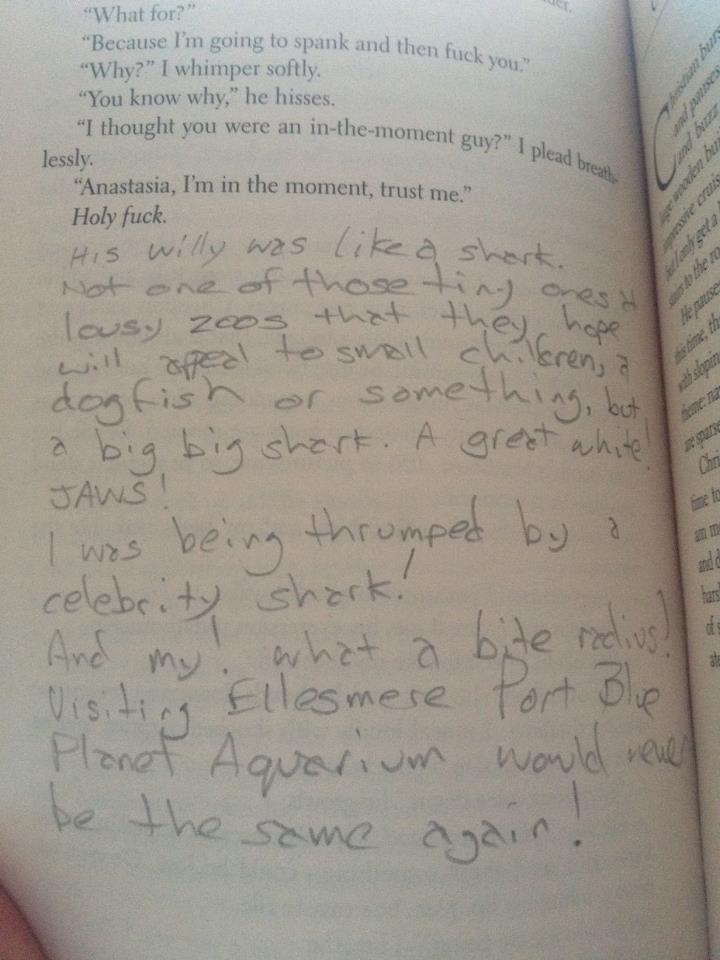 "What for?"
"Because I'm going to spank and then fuck you."
"Why?" I whimper softly.
"You know why," he hisses.
"I thought you were an in-the-moment guy?" I plead breath-
lessly.
"Anastasia, I'm in the moment, trust me."
Holy fuck.
His willy was like a shark.
Not one of those tiny ones a
lousy zoos that they hope
will appeal to small children, a
dogfish or something, but
a big big shark. A great white!
JAWS!
I was being thrumped by a
celebrity shark!
And my! what a bite radius!
Visiting Ellesmere Port Blue
Planet Aquarium would never
be the same again!
Christian burs
and pauses
and buzz
large wooden bur
impressive cruis
but I only get a
stairs to the ro
He pauses
this time, th
with slopin
theme: na
are sparse
Chri
time to
am m
and d
hars
of s
ate